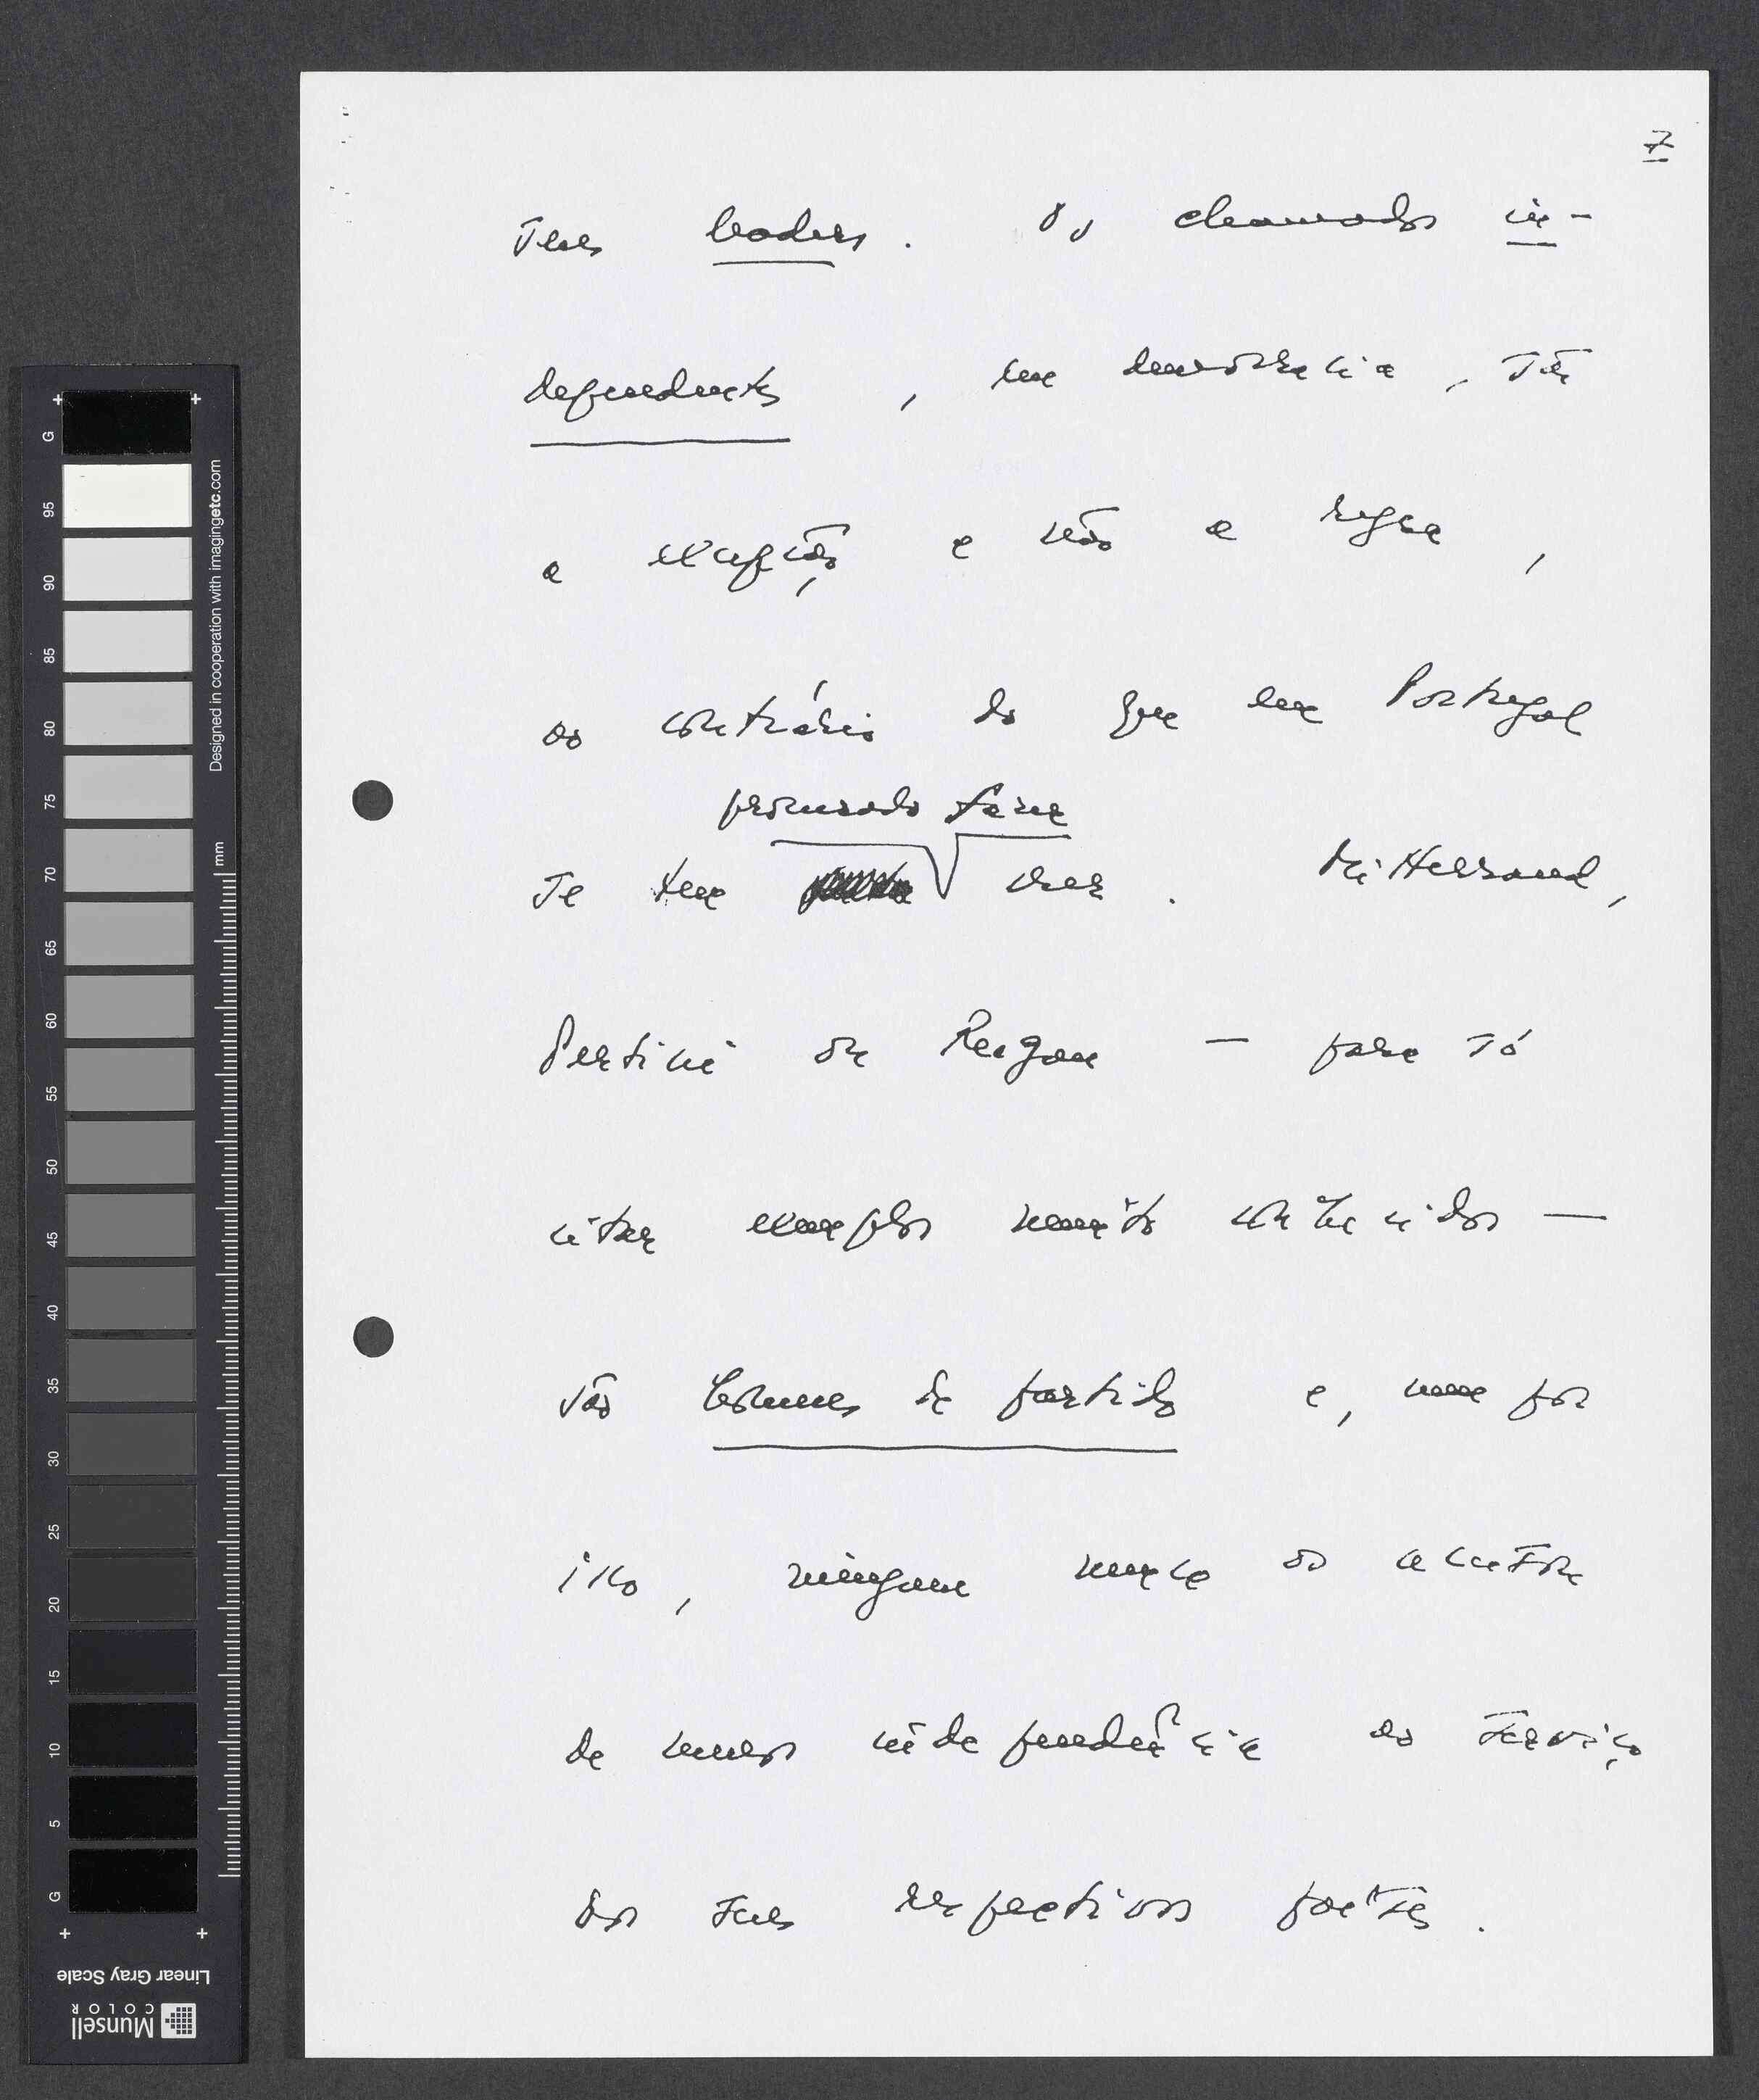 7
seus leaders. Os chamados in-
dependentes, em democracia, são
a excepção e não a regra,
ao contrário do que em Portugal
procurado fazer
se tem crer. Mitterrand,
Pertini ou Reagan — para só
citar exemplos muito conhecidos —
são homens de partido e, nem por
isso, ninguém nunca os acusou
de menos independência ao serviço
dos seus respectivos países.
G
95
90
85
80
75
70
65
60
55
50
45
40
35
30
25
20
15
10
5
G
mm
Designed in cooperation with imagingetc.com
Linear Gray Scale
Munsell
COLOR